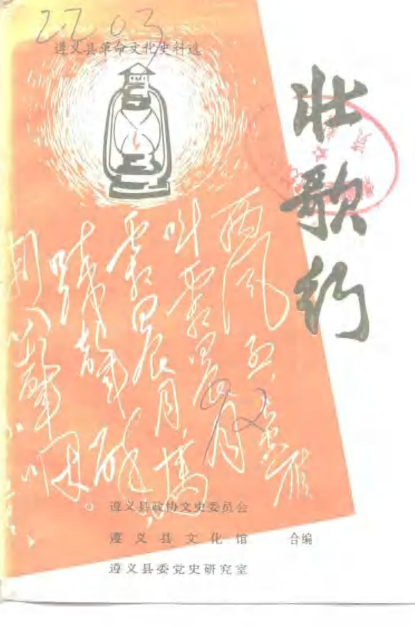 2203
遵义县革命文化史料选
壮歌行
西风烈，长空雁
叫霜晨月。
霜晨月，马
蹄声碎，
喇叭声咽。
遵义县政协文史委员会
遵义县文化馆 合编
遵义县委党史研究室